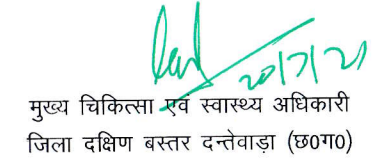 20/7/21
मुख्य चिकित्सा एवं स्वास्थ्य अधिकारी
जिला दक्षिण बस्तर दन्तेवाड़ा (छ0ग0)